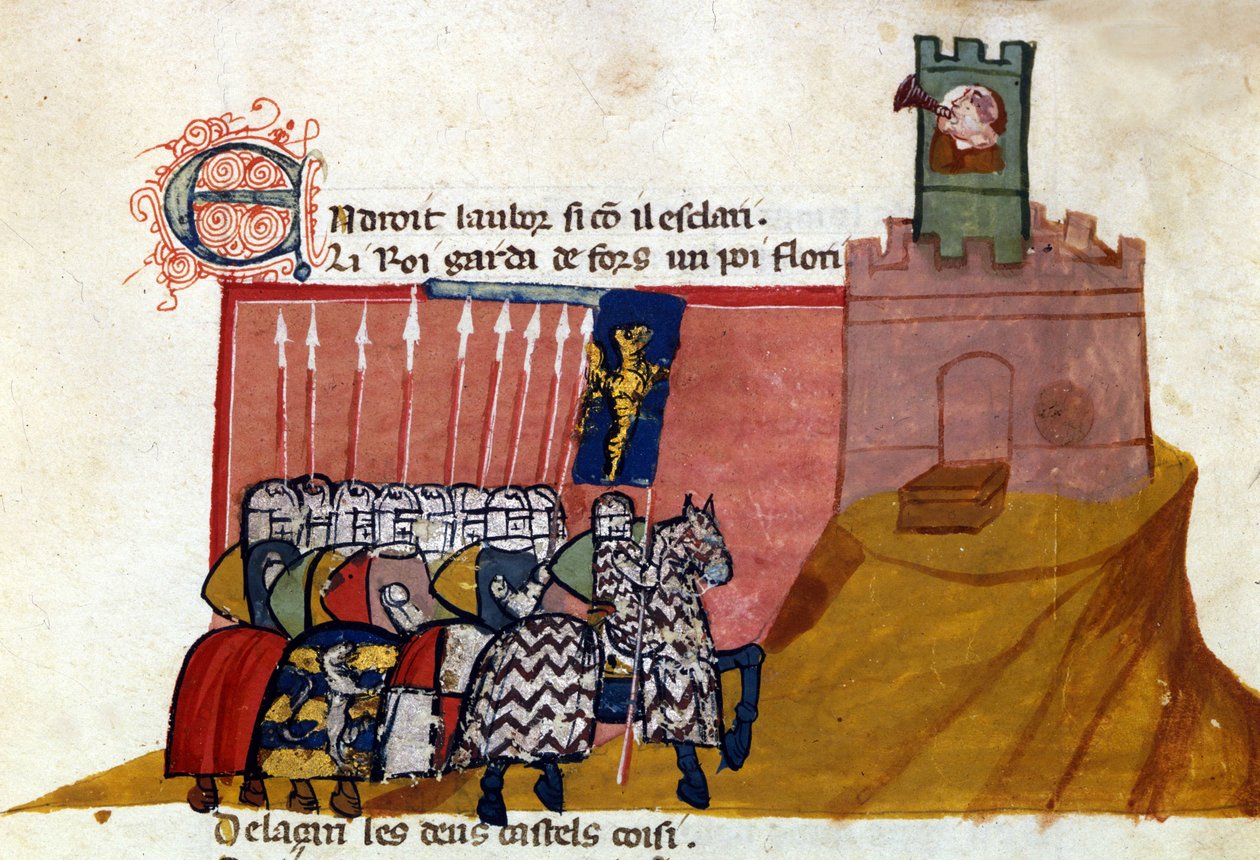 ENdroit laubor si cō il esclari.
Li Roi garda de fors un poi flori
les deus castels coisi.